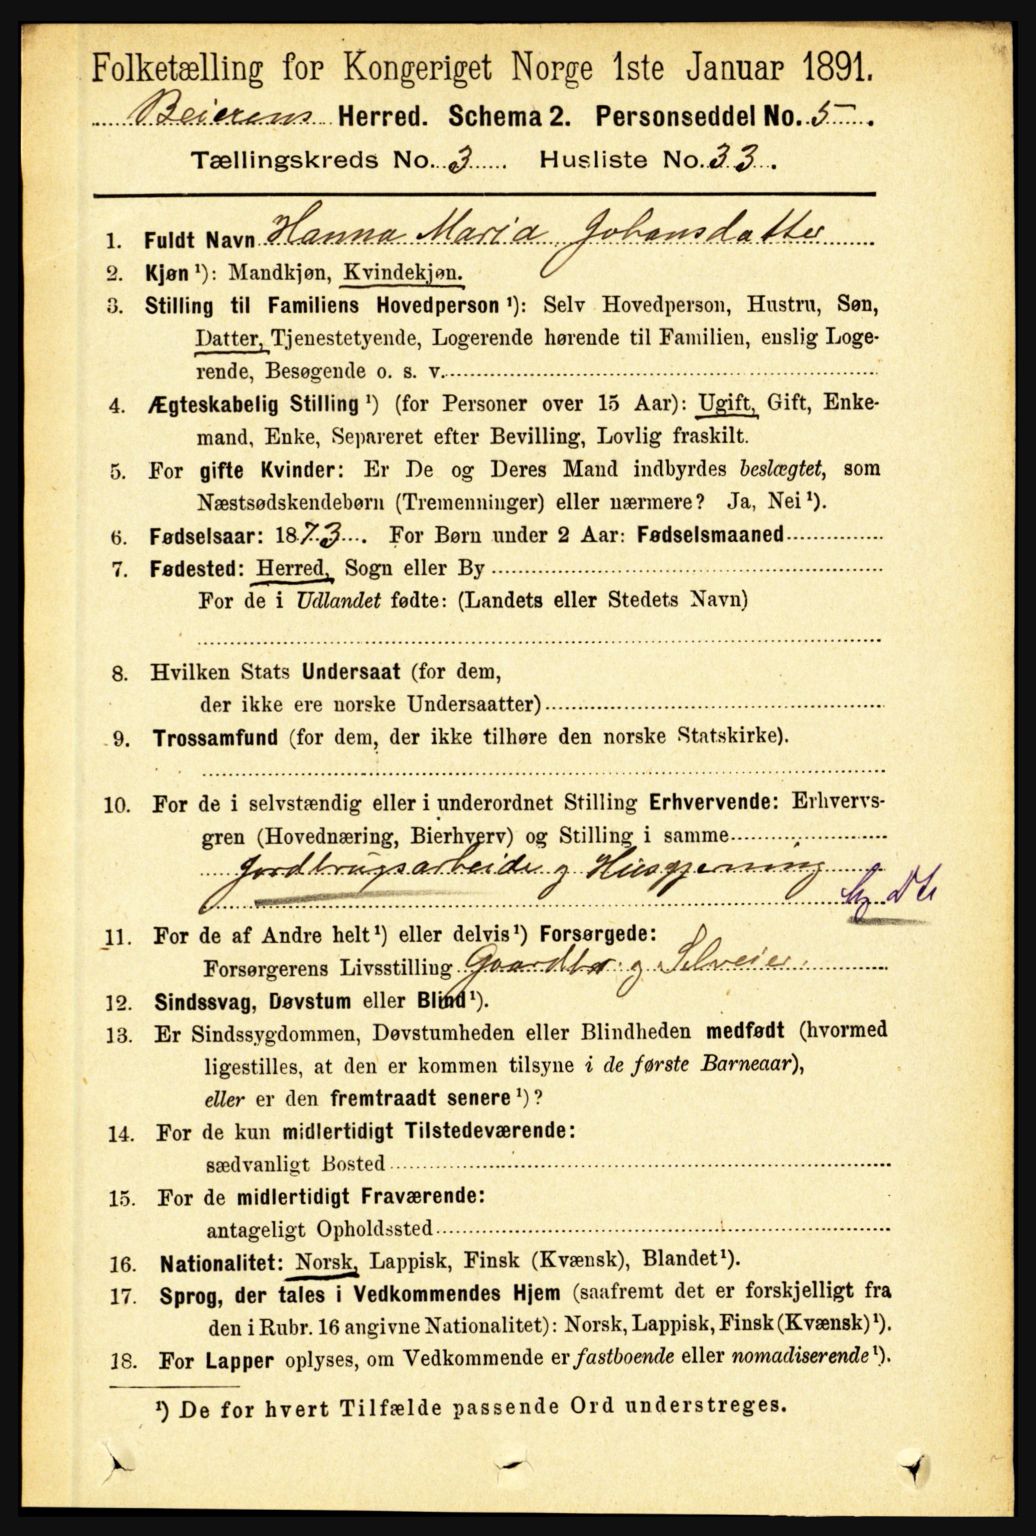 Folketælling for Kongeriget Norge 1ste Januar 1891.
Beierens Herred. Schema 2. Personseddel No. 5.
Tællingskreds No. 3 Husliste No. 33.
1. Fuldt Navn Hanna Maria Johansdatter
2. Kjøn ¹): Mandkjøn, Kvindekjøn.
3. Stilling til Familiens Hovedperson ¹): Selv Hovedperson, Hustru, Søn,
Datter, Tjenestetyende, Logerende hørende til Familien, enslig Loge-
rende, Besøgende o. s. v.
4. Ægteskabelig Stilling ¹) (for Personer over 15 Aar): Ugift, Gift, Enke-
mand, Enke, Separeret efter Bevilling, Lovlig fraskilt.
5. For gifte Kvinder: Er De og Deres Mand indbyrdes beslægtet, som
Næstsødskendebørn (Tremenninger) eller nærmere? Ja, Nei ¹).
6. Fødselsaar: 1873. For Børn under 2 Aar: Fødselsmaaned
7. Fødested: Herred, Sogn eller By
For de i Udlandet fødte: (Landets eller Stedets Navn)
8. Hvilken Stats Undersaat (for dem,
der ikke ere norske Undersaatter)
9. Trossamfund (for dem, der ikke tilhøre den norske Statskirke).
10. For de i selvstændig eller i underordnet Stilling Erhvervende: Erhvervs-
gren (Hovednæring, Bierhverv) og Stilling i samme
Jordbrugsarbeide og Husgjerning
11. For de af Andre helt ¹) eller delvis ¹) Forsørgede:
Forsørgerens Livsstilling Gaardbr. og Selveier.
12. Sindssvag, Døvstum eller Blind ¹).
13. Er Sindssygdommen, Døvstumheden eller Blindheden medfødt (hvormed
ligestilles, at den er kommen tilsyne i de første Barneaar),
eller er den fremtraadt senere ¹)?
14. For de kun midlertidigt Tilstedeværende:
sædvanligt Bosted
15. For de midlertidigt Fraværende:
antageligt Opholdssted
16. Nationalitet: Norsk, Lappisk, Finsk (Kvænsk), Blandet ¹).
17. Sprog, der tales i Vedkommendes Hjem (saafremt det er forskjelligt fra
den i Rubr. 16 angivne Nationalitet): Norsk, Lappisk, Finsk (Kvænsk) ¹).
18. For Lapper oplyses, om Vedkommende er fastboende eller nomadiserende ¹).
¹) De for hvert Tilfælde passende Ord understreges.